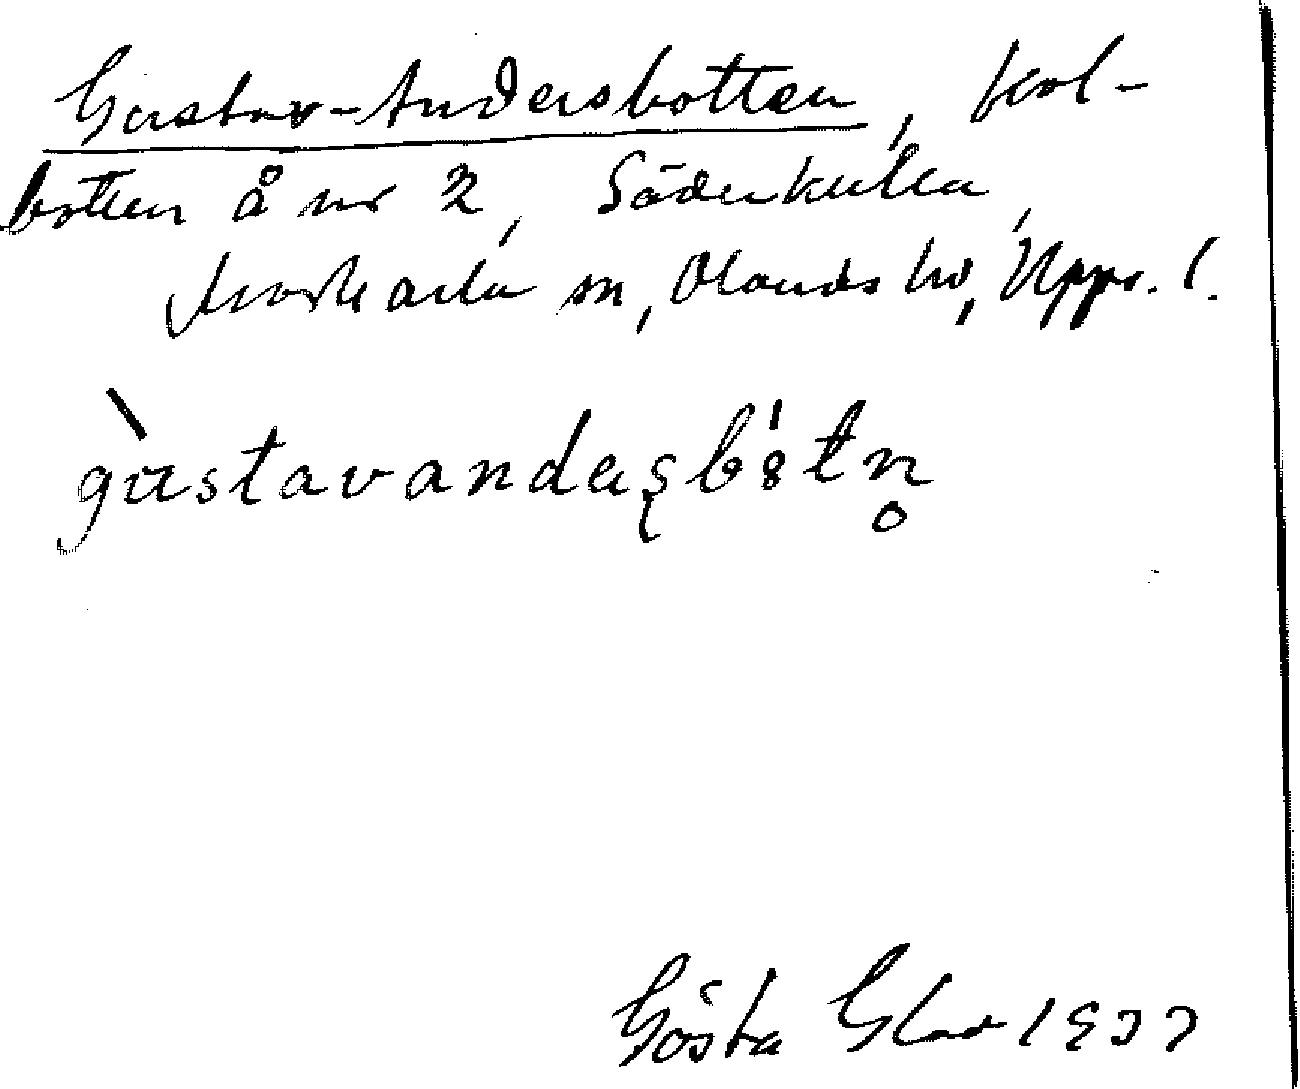 Gustav-Andersbotten, kol-
botten å nr 2, Söderkulla,
Morkarla sn, Olands hd, Upps. l.
gu̇stavandeʂbòtn̥
Gösta Glad 1933